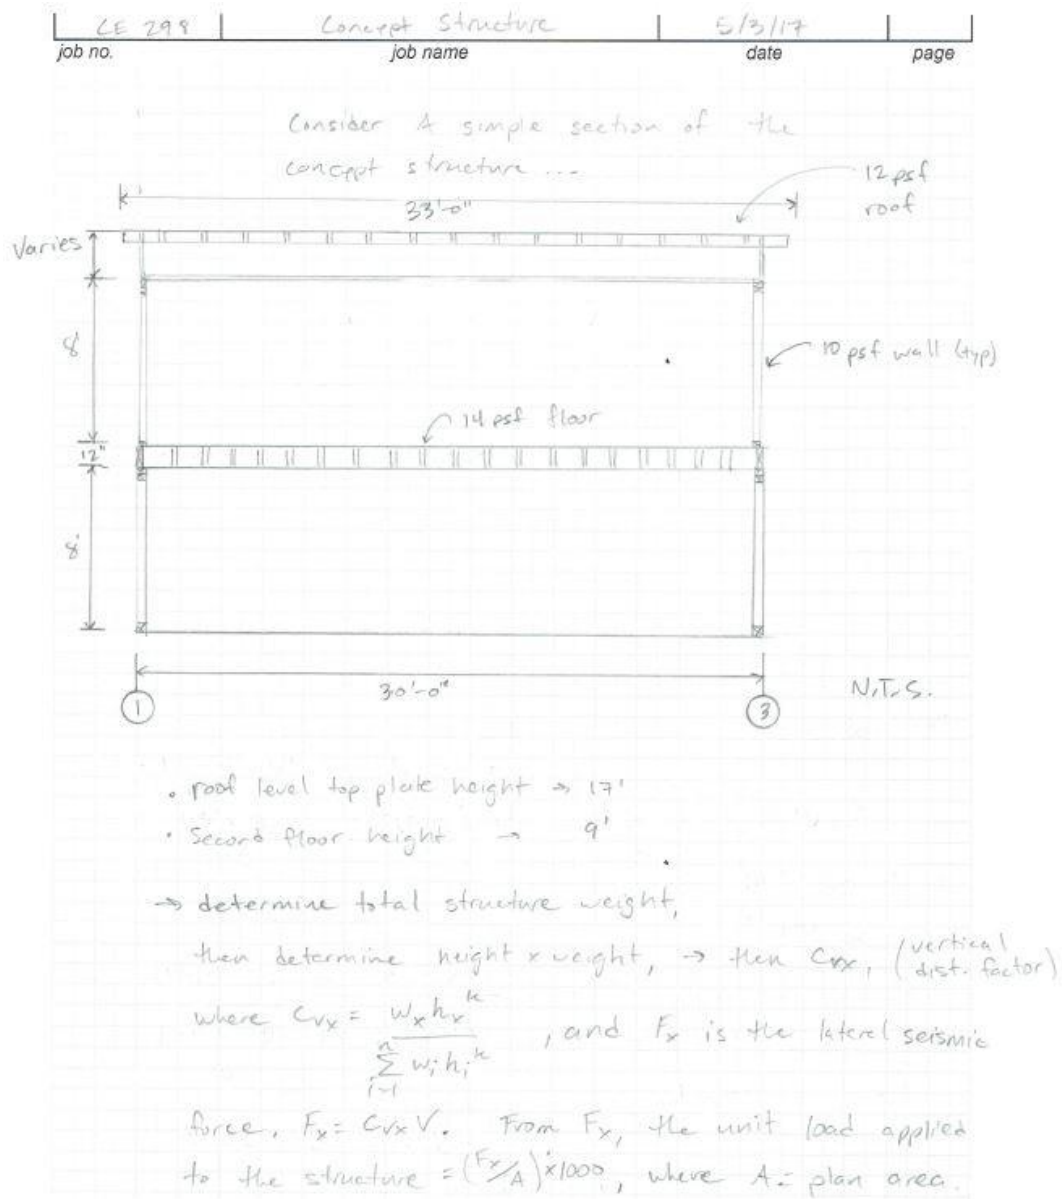 CE 298 Concept Structure 5/3/17
job no. job name date page
Consider A simple section of the
concept structure ...
12 psf
roof
33'-0"
Varies
8'
10 psf wall (typ)
14 psf floor
12"
8'
30'-0"
N.T.S.
1 3
• roof level top plate height → 17'
• Second floor height → 9'
→ determine total structure weight,
then determine height x weight, → then Cvx, (vertical
dist. factor)
where Cvx = wx hx^k / Σ wi hi^k , and Fx is the lateral seismic
n
i-1
force, Fx = Cvx V. From Fx, the unit load applied
to the structure = (Fx/A) x1000, where A = plan area.